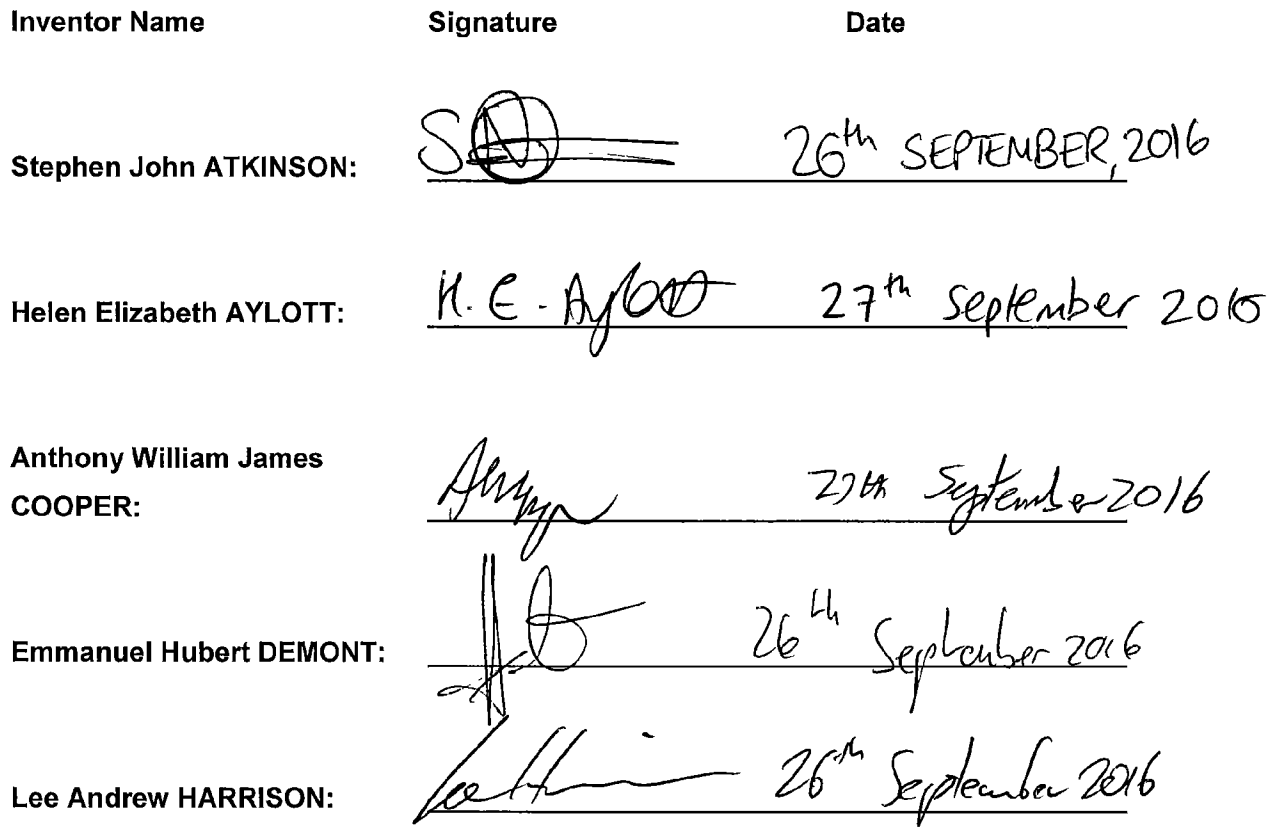 Inventor Name Signature Date
Stephen John ATKINSON: 26th SEPTEMBER, 2016
Helen Elizabeth AYLOTT: H. E. Aylott 27th September 2016
Anthony William James
COOPER: 27th September 2016
Emmanuel Hubert DEMONT: 26th September 2016
Lee Andrew HARRISON: 26th September 2016